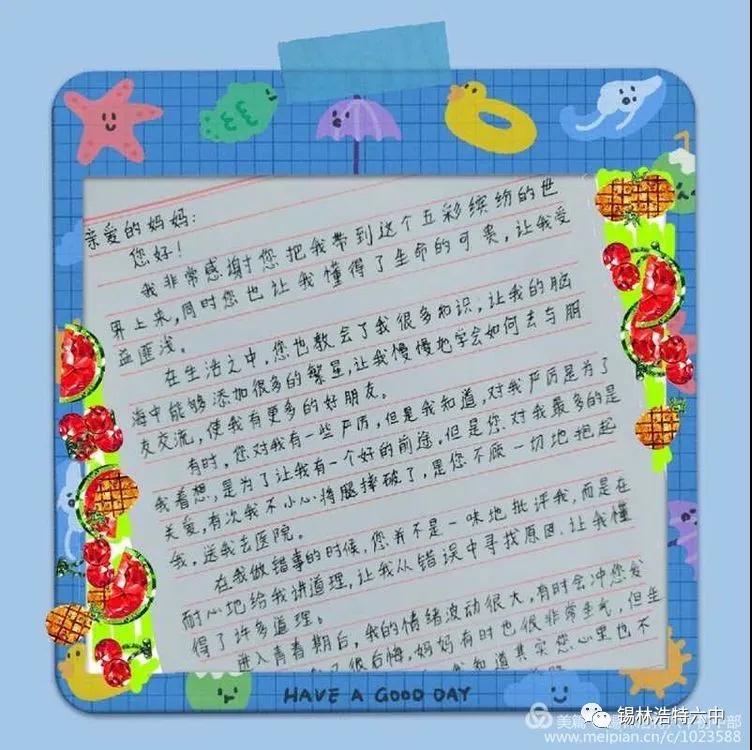 亲爱的妈妈:
您好!
我非常感谢您把我带到这个五彩缤纷的世
界上来,同时您也让我懂得了生命的可贵,让我受
益匪浅。
在生活之中,您也教会了我很多知识,让我的脑
海中能够添加很多的繁星,让我慢慢地学会如何去与朋
友交流,使我有更多的好朋友。
有时,您对我有一些严厉,但是我知道,对我严厉是为了
我着想,是为了让我有一个好的前途,但是您对我最多的是
关爱,有次我不小心将腿摔破了,是您不顾一切地抱起
我,送我去医院。
在我做错事的时候,您并不是一味地批评我,而是在
耐心地给我讲道理,让我从错误中寻找原因,让我懂
得了许多道理。
进入青春期后,我的情绪波动很大,有时会冲您发
了很后悔,妈妈有时也很非常生气,但生
我知道其实您心里也不
HAVE A GOOD DAY
美篇
锡林浩特六中
www.meipian.cn/c/1023588